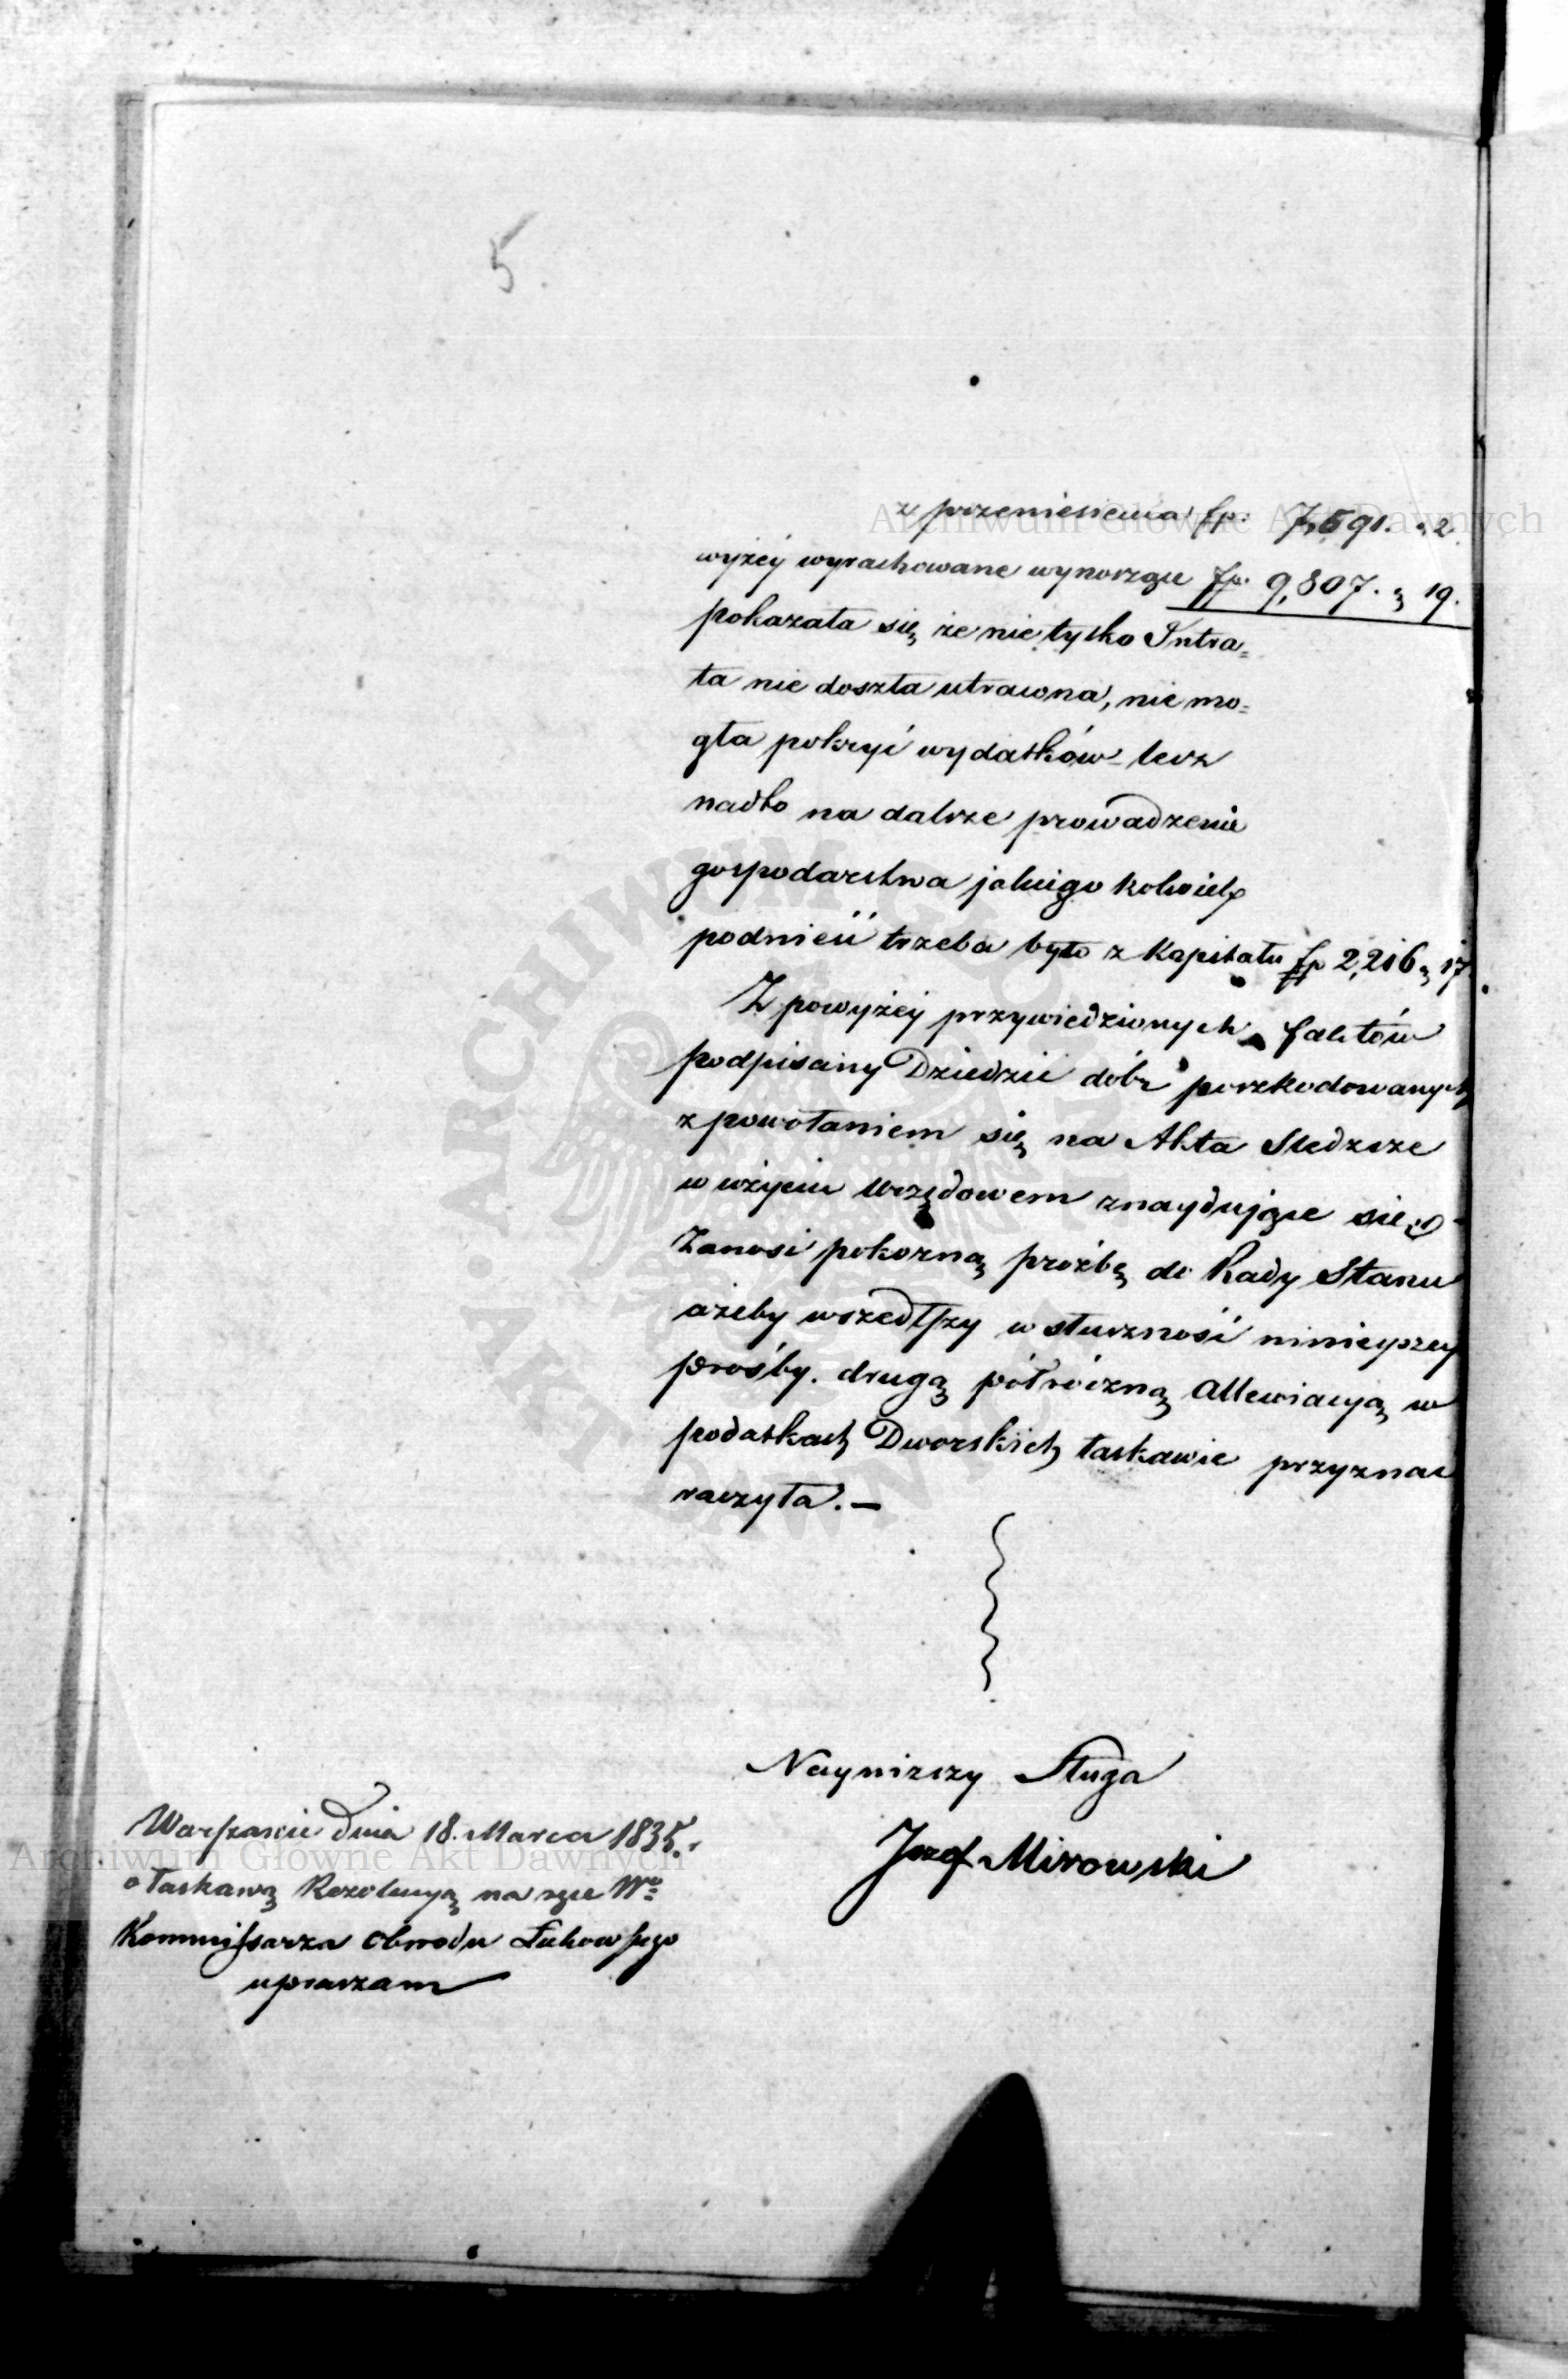 5.
z przeniesienia fp. 7,591. „ 2.
wyżéy wyrachowane wynoszące fp. 9,807. „ 19.
pokazała się że nie tylko Intra=
ta nie doszła utracona, nie mo=
gła pokryć wydatków lecz
nadto na dalsze prowadzenie
gospodarstwa jakiego kolwiek
podnieść trzeba było z Kapitału fp 2,216 „ 17
Z powyżéy przywiedzionych faktów
podpisany Dziedzic dóbr poszkodowanych
z powołaniem się na Akta Śledcze
w użyciu Urzędowem znayduiące się
Zanosi pokorną prożbę do Rady Stanu
ażeby wszedłszy w słuszność ninieyszey
prośby. drugą półroczną Allewiacyą w
podatkach Dworskich łaskawie przyznać
raczyła. —
Nayniższy Sługa
Jozef Mirowski
Warszawie dnia 18. Marca 1835.
o łaskawą Rezolucyą na ręce Wo
Kommissarza Obwodu Łukowskiego
upraszam
Archiwum Główne Akt Dawnych